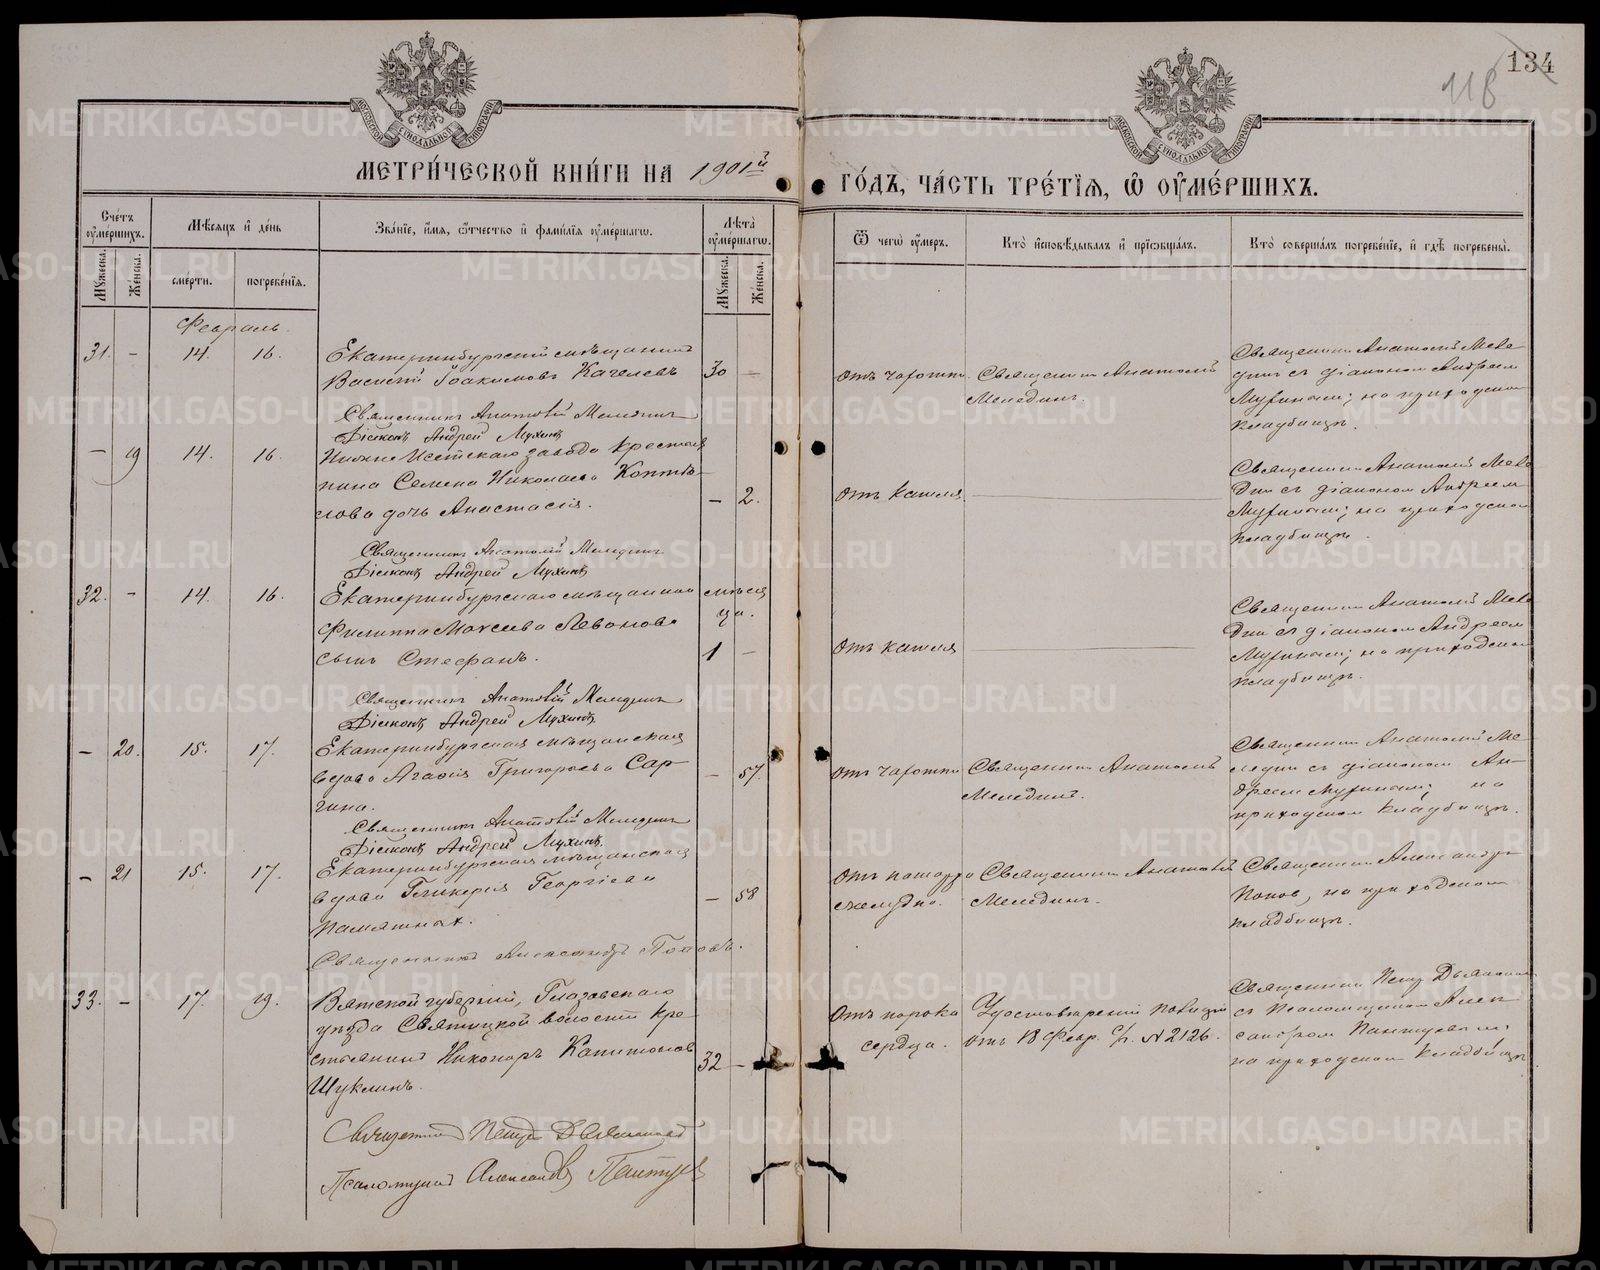 134
118
МЕТРИ́ЧЕСКОЙ КНИ́ГИ НА 1901й ГО́ДЪ, ЧА́СТЬ ТРЕ́ТЇѦ, Ѽ ОУ҆МЕ́РШИХЪ.
Сче́тъ оу҆ме́ршихъ.
Мꙋ́жеска.
Же́нска.
Мѣ́сѧцъ и҆ де́нь
сме́рти.
погребе́нїѧ.
Зва́нїе, и҆́мѧ, ѻ҆́тчество и҆ фами́лїѧ оу҆ме́ршагѡ.
Лѣ́та оу҆ме́ршагѡ.
Мꙋ́жеска.
Же́нска.
Ѿ чегѡ̀ оу҆́меръ.
Кто̀ и҆сповѣ́дывалъ и҆ прїѡбща́лъ.
Кто̀ соверша́лъ погребе́нїе, и҆ гдѣ̀ погребены̀.
Февраль.
31. - 14. 16.
Екатеринбургскій мѣщанинъ
Василій Іоакимовъ Качелевъ
30 -
отъ чахотки
Священникъ Анатолій
Мелединъ.
Священникъ Анатолій Меле
динъ съ діакономъ Андреем
Мухинымъ; на приходском
кладбищѣ.
Священникъ Анатолій Меледин
Діаконъ Андрей Мухинъ
- 19 14. 16.
Нижне Исетскаго завода крестья
нина Семена Николаева Коптѣ
лова дочь Анастасія.
- 2.
отъ кашля
Священникъ Анатолій Меле
дин съ діакономъ Андреем
Мухинымъ; на приходском
кладбищѣ.
Священникъ Анатолій Меледин
Діаконъ Андрей Мухинъ
32. - 14. 16.
Екатеринбургскаго мѣщанина
Филиппа Моисеева Левонова
сынъ Стефанъ.
мѣся
ца.
1 -
отъ кашля
Священникъ Анатолій Меле
дин съ діакономъ Андреем
Мухинымъ; на приходском
кладбищѣ.
Священникъ Анатолій Меледин
Діаконъ Андрей Мухинъ
- 20. 15. 17.
Екатеринбургская мѣщанская
вдова Агафія Григорьева Сар
гина.
- 57.
отъ чахотки
Священникъ Анатолій
Меледин.
Священникъ Анатолій Ме
ледин съ діакономъ Ан-
дреем Мухинымъ; на
приходском кладбищѣ.
Священникъ Анатолій Меледин
Діаконъ Андрей Мухинъ.
- 21 15. 17.
Екатеринбургская мѣщанская
вдова Гликерія Георгіева
Памятныхъ.
- 58
отъ катарра
желудка.
Священникъ Анатолій
Меледин.
Священникъ Александръ
Попов, на приходском
кладбищѣ.
Священникъ Александръ Поповъ.
33. - 17. 19.
Вятской губерніи, Глазовскаго
уѣзда Святицкой волости кре
стьянинъ Никаноръ Капитонов
Шуклинъ.
32 -
отъ порока
сердца.
Удостовѣреніе полиціи
отъ 18 Февр. с/г. № 2126.
Священникъ Петр
съ Псаломщиком Алек
сандром
на приходском кладбищѣ
Священникъ Петр
Псаломщикъ Александръ
METRIKI.GASO-URAL.RU